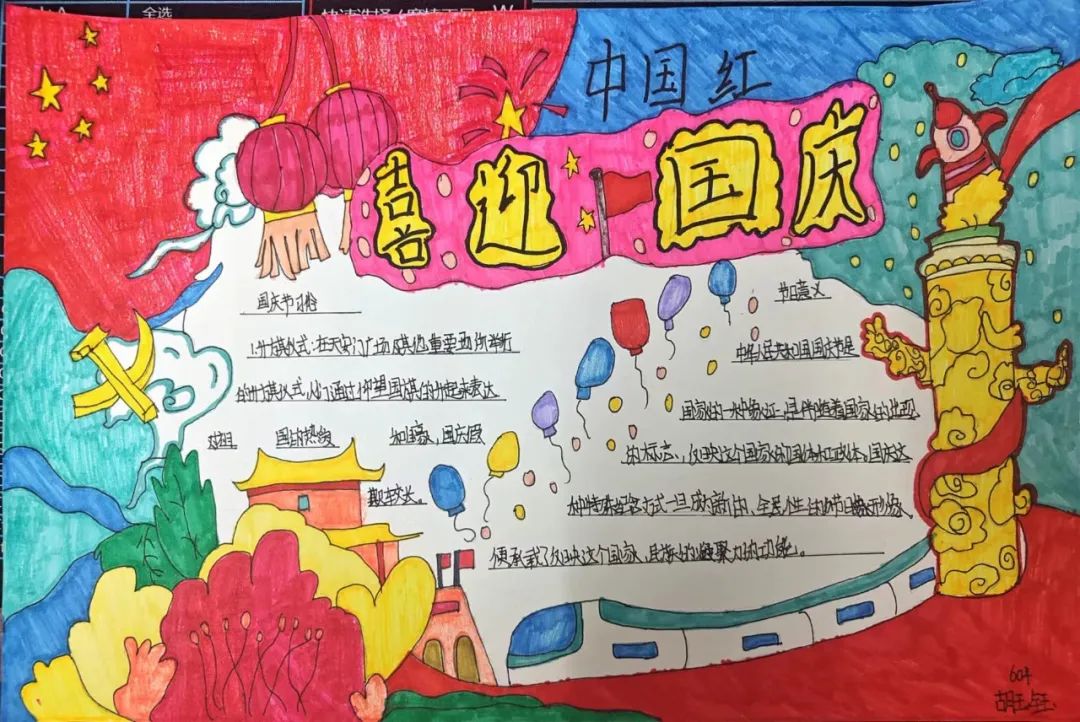 全选
中国红
喜迎国庆
国庆节习俗
1.升旗仪式:在天安门广场及其他重要场所举行
的升旗仪式,人们通过仰望国旗的升起来表达
对祖 国的热爱 和自豪,国庆假
期较长。
节日意义
中华人民共和国国庆节是
国家的一种象征,是伴随着国家的出现
的标志、反映这个国家的国体和政体,国庆这
种特殊纪念方式一旦成为新的、全民性的节日形式
便承载了反映这个国家、民族的凝聚力的功能。
604